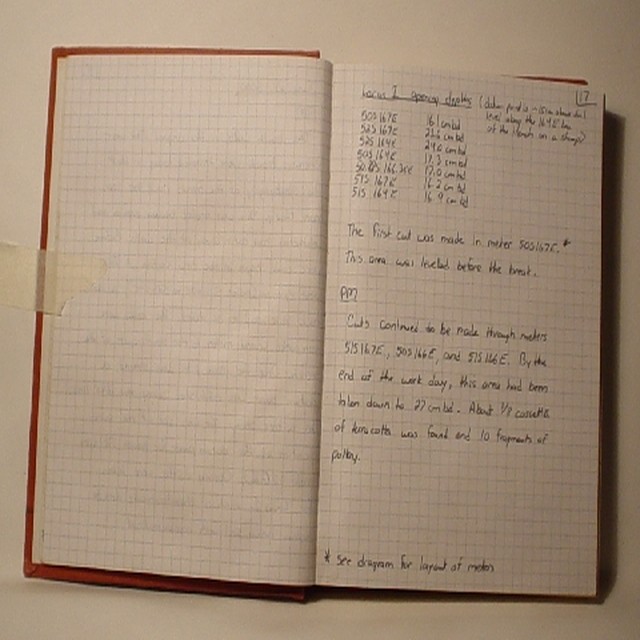 17
Locus I opening depths (datum point is ~15cm above dirt
level along the 164E line
of the trench on a stump)
50S 167E 16.1 cm bd
52S 167E 23.6 cm bd
52S 164E 24.6 cm bd
50S 164E 17.3 cm bd
166.3E 17.0 cm bd
51S 167E 16.2 cm bd
51S 164E 16.9 cm bd
The first cut was made in meter 50S167E.*
This area was leveled before the break.
PM
Cuts continued to be made through meters
51S167E, 50S166E, and 51S166E. By the
end of the work day, this area had been
taken down to 27 cm bd. About 1/2 cassette
of terracotta was found and 10 fragments of
pottery.
* see diagram for layout of meters